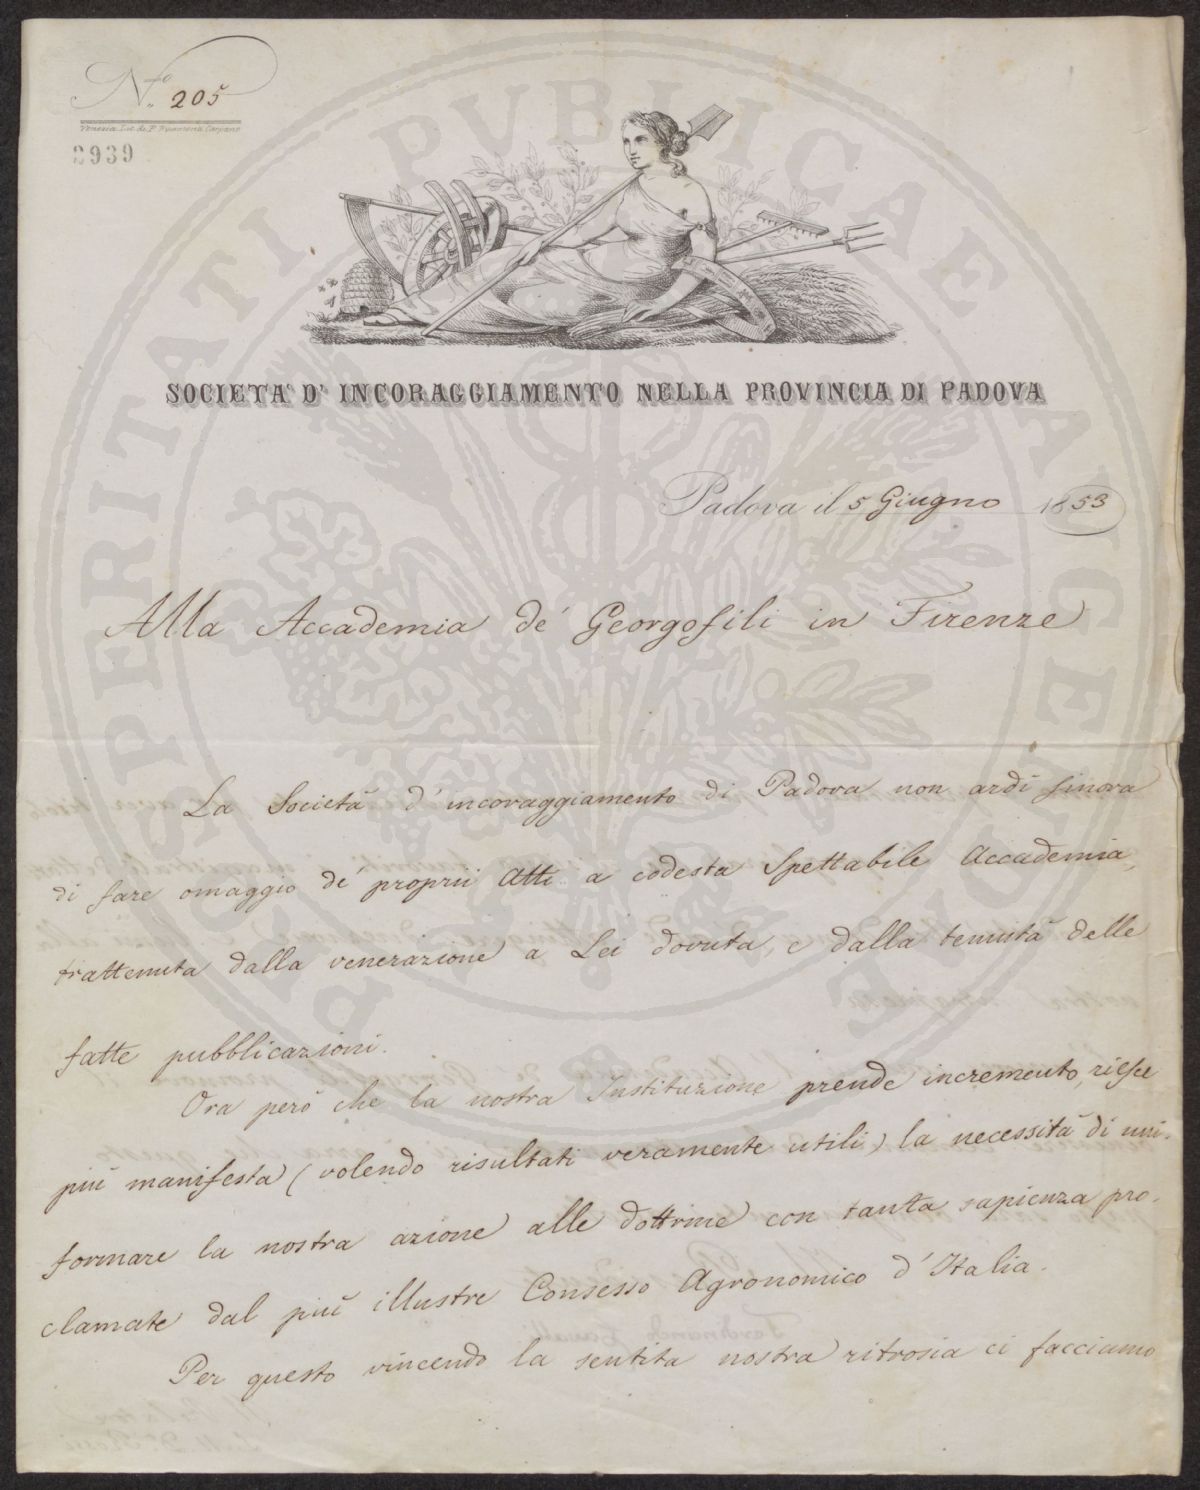 N.º 205
Venezia Lit. di P.
2939
PROSPERITATI PUBLICAE AUGENDAE
SOCIETA' D' INCORAGGIAMENTO NELLA PROVINCIA DI PADOVA
Padova il 5 Giugno 1853
Alla Accademia de' Georgofili in Firenze
La Società d'incoraggiamento di Padova non ardì sinora
di fare omaggio de' proprii Atti a codesta Spettabile Accademia,
trattenuta dalla venerazione a Lei dovuta, e dalla tenuità delle
fatte pubblicazioni.
Ora però che la nostra Instituzione prende incremento, riesce
più manifesta (volendo risultati veramente utili) la necessità di uni-
formare la nostra azione alle dottrine con tanta sapienza pro-
clamate dal più illustre Consesso Agronomico d'Italia.
Per questo vincendo la sentita nostra ritrosia ci facciamo